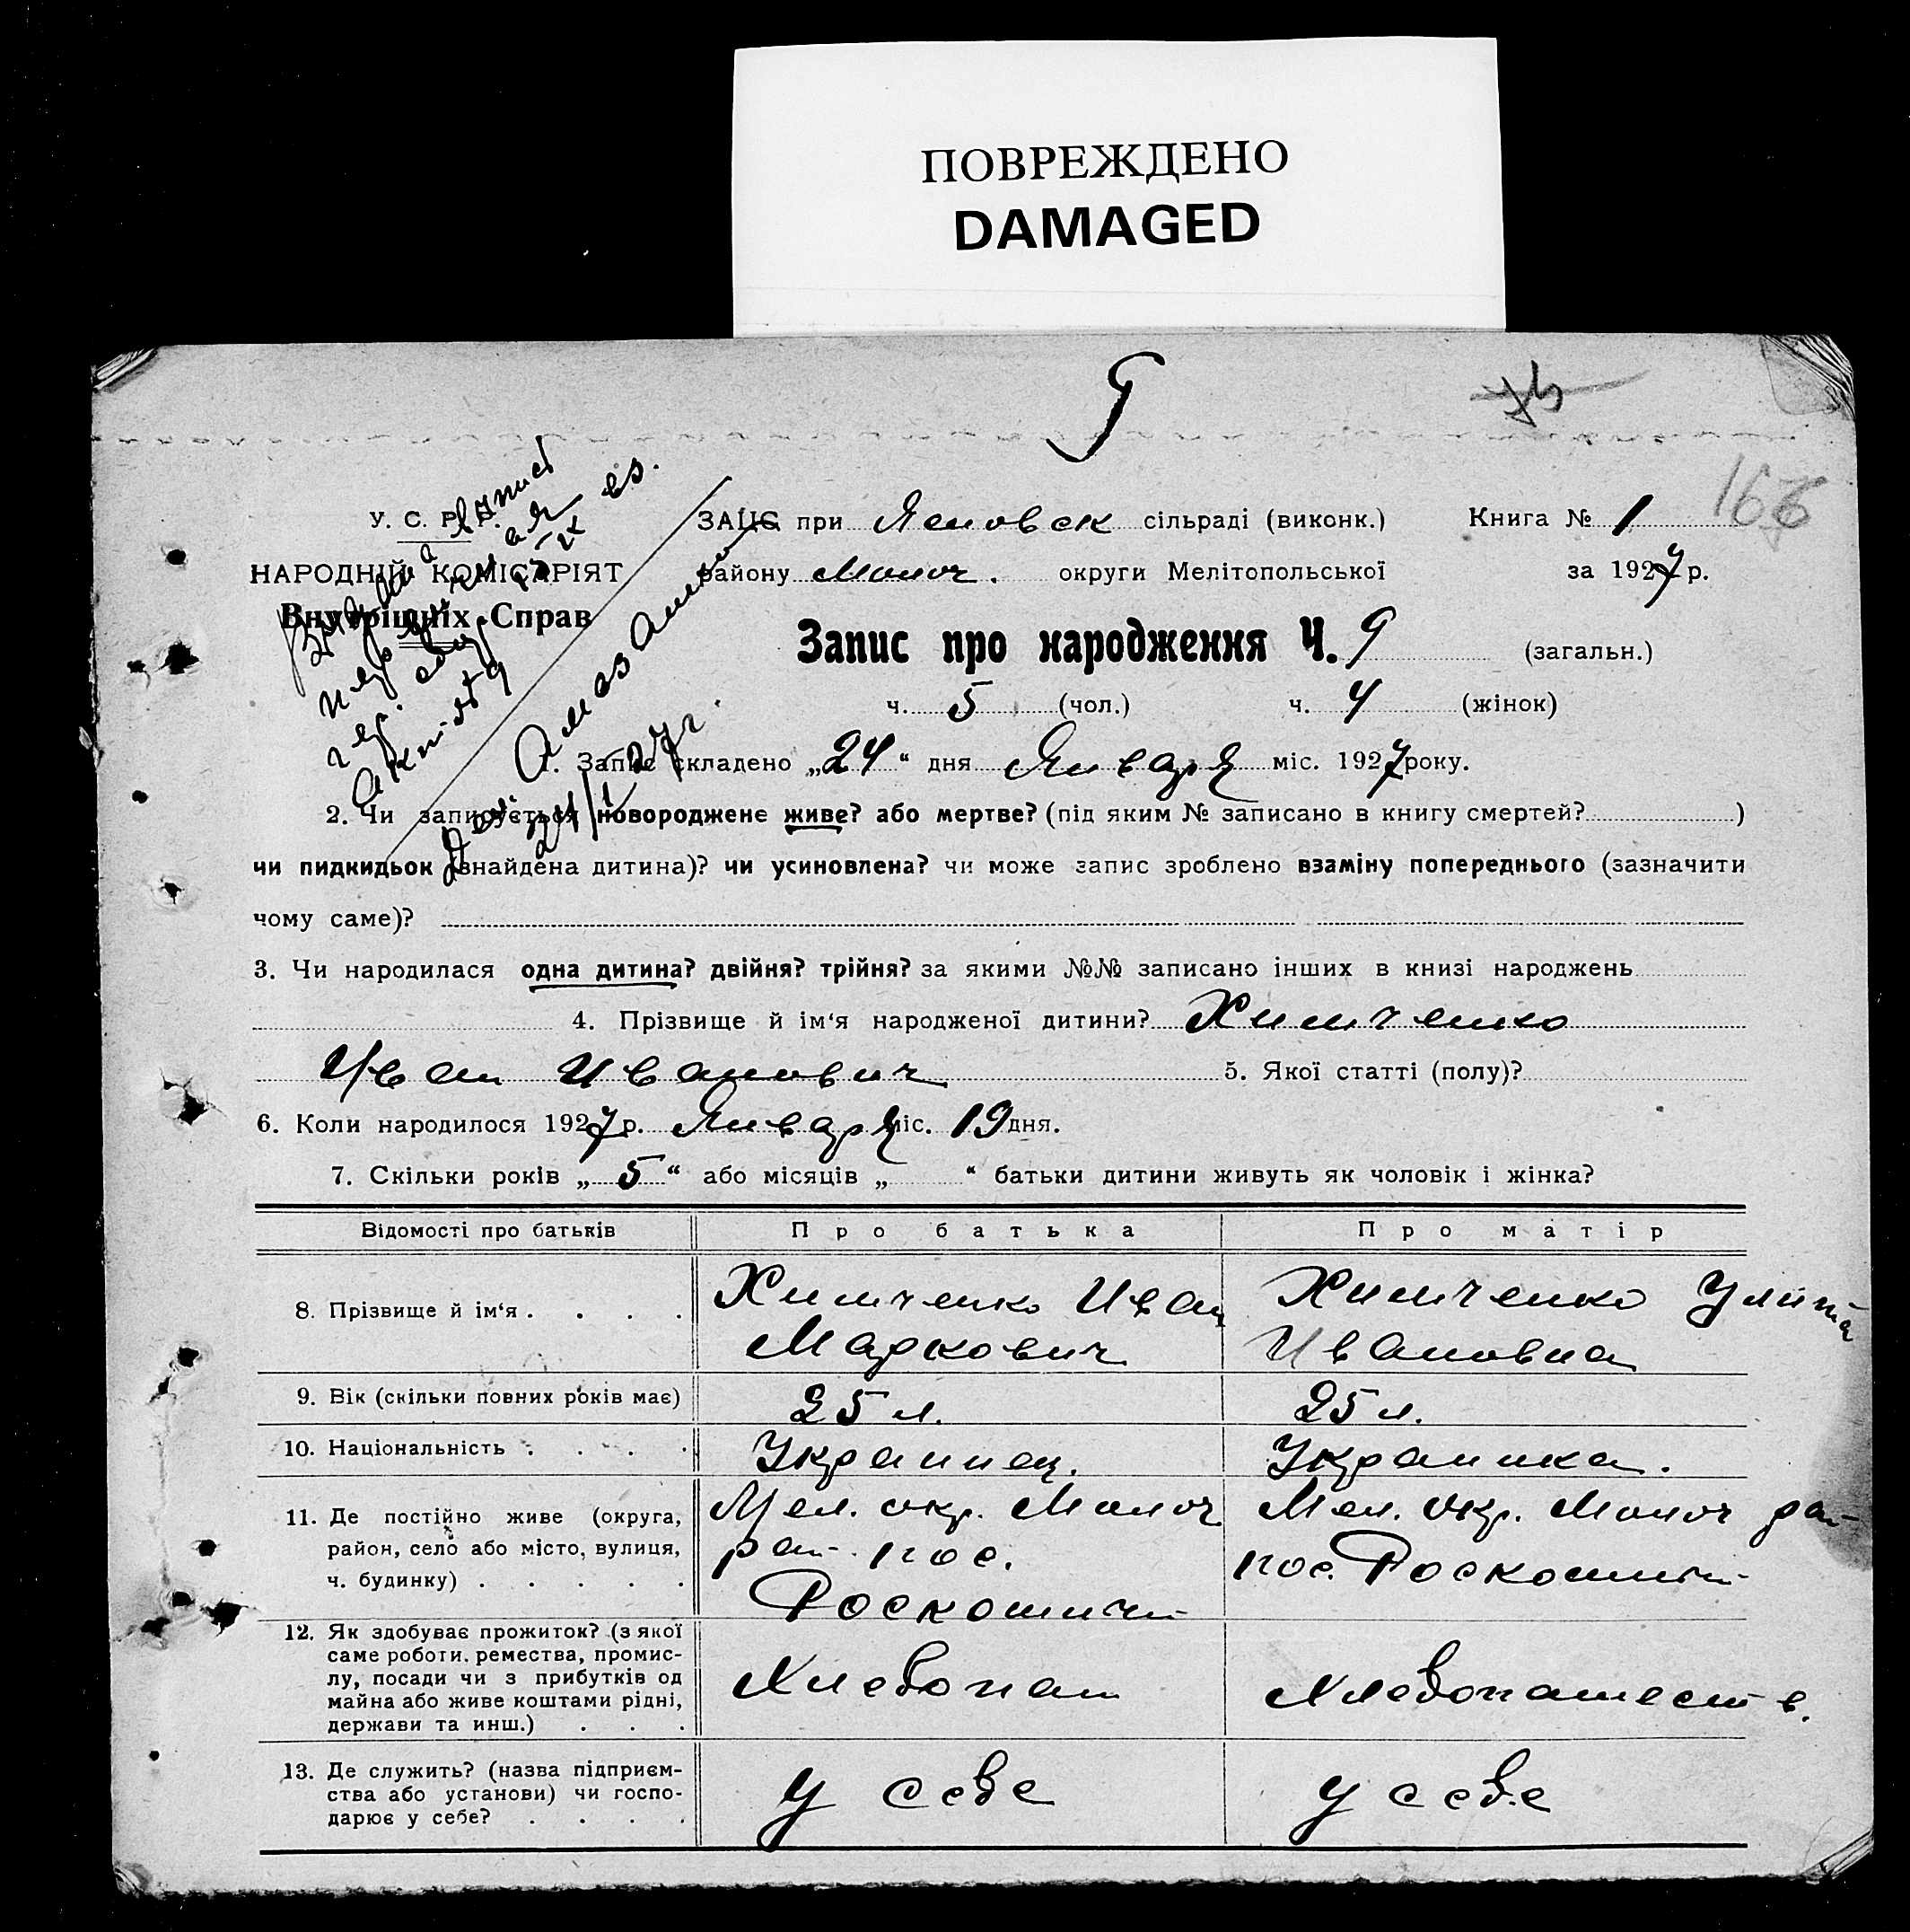 ПОВРЕЖДЕНО
DAMAGED
9
75
166
У. С. Р. Р.
НАРОДНІЙ КОМІСАРІЯТ
Внутрішніх Справ
ЗАЦС при Ясновск сільраді (виконк.) Книга № 1
району Молоч. округи Мелітопольської за 1927 р.
Запис про народження Ч. 9 (загальн.)
ч. 5 (чол.) ч. 4 (жінок)
1. Запис складено „24“ дня Января міс. 1927 року.
2. Чи записується новороджене живе? або мертве? (під яким № записано в книгу смертей? )
чи пидкидьок (знайдена дитина)? чи усиновлена? чи може запис зроблено взаміну попереднього (зазначити
чому саме)?
3. Чи народилася одна дитина? двійня? трійня? за якими №№ записано інших в книзі народжень
4. Прізвище й ім‘я народженої дитини? Химченко
Иван Иванович 5. Якої статті (полу)?
6. Коли народилося 1927 р. Января міс. 19 дня.
7. Скільки років „5“ або місяців „ “ батьки дитини живуть як чоловік і жінка?
Відомості про батьків Про батька Про матір
8. Прізвище й ім‘я . . . . Химченко Иван Маркович Химченко Улита Ивановна
9. Вік (скільки повних років має) 25 л. 25 л.
10. Національність . . . . Украинец. Украинка.
11. Де постійно живе (округа,
район, село або місто, вулиця,
ч. будинку) . . . . .
Мел. окр. Молоч
рай. пос.
Мел. Окр. Молоч рай
пос.
12. Як здобуває прожиток? (з якої
саме роботи, ремества, промис-
лу, посади чи з прибутків од
майна або живе коштами рідні,
держави та инш.) . . .
Хлебопаш Хлебопашеств.
13. Де служить? (назва підприєм-
ства або установи) чи госпо-
дарює у себе? . . . .
у себе у себе